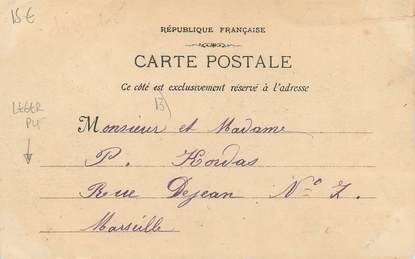 15 €
RÉPUBLIQUE FRANÇAISE
CARTE POSTALE
Ce côté est exclusivement réservé à l'adresse
13)
LEGER
PLI
Monsieur et Madame
P. Hordas
Rue Dejean N° 7.
Marseille